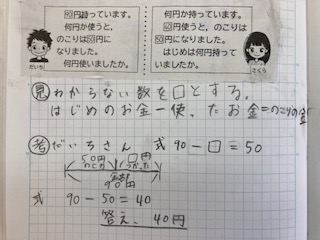 90円持っています。
何円か使うと、
のこりは50円に
なりました。
何円使いましたか。
だいち
何円か持っています。
円使うと、のこりは
円になりました。
はじめは何円持って
いましたか。
さくら
見 わからない数を□とする。
はじめのお金－使ったお金＝のこりの金
考 だいちさん 式 90－□＝50
50円 □円
のこり つかった
全部
90円
式 90－50＝40
答え、40円